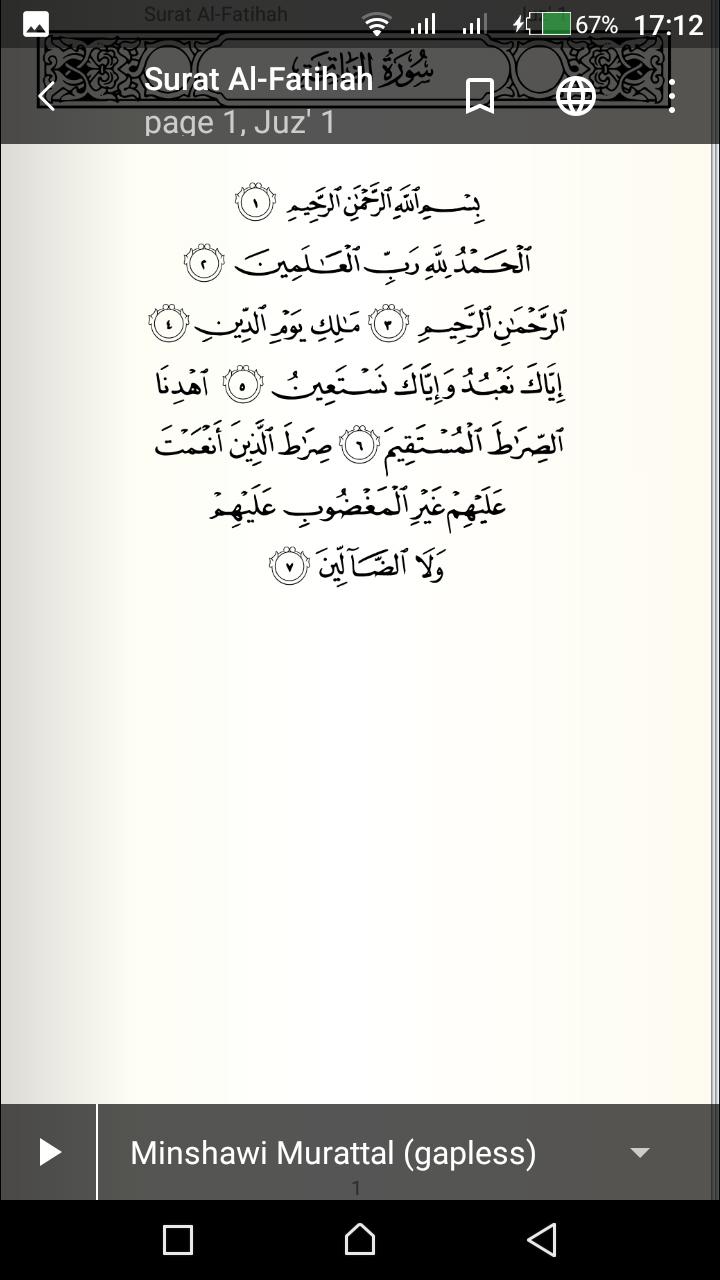 Surat Al-Fatihah
Juz' 1
67% 17:12
سُورَةُ الفَاتِحَةِ
Surat Al-Fatihah
page 1, Juz' 1
بِسْمِ ٱللَّهِ ٱلرَّحْمَٰنِ ٱلرَّحِيمِ ١
ٱلْحَمْدُ لِلَّهِ رَبِّ ٱلْعَٰلَمِينَ ٢
ٱلرَّحْمَٰنِ ٱلرَّحِيمِ ٣ مَٰلِكِ يَوْمِ ٱلدِّينِ ٤
إِيَّاكَ نَعْبُدُ وَإِيَّاكَ نَسْتَعِينُ ٥ ٱهْدِنَا
ٱلصِّرَٰطَ ٱلْمُسْتَقِيمَ ٦ صِرَٰطَ ٱلَّذِينَ أَنْعَمْتَ
عَلَيْهِمْ غَيْرِ ٱلْمَغْضُوبِ عَلَيْهِمْ
وَلَا ٱلضَّآلِّينَ ٧
Minshawi Murattal (gapless)
1